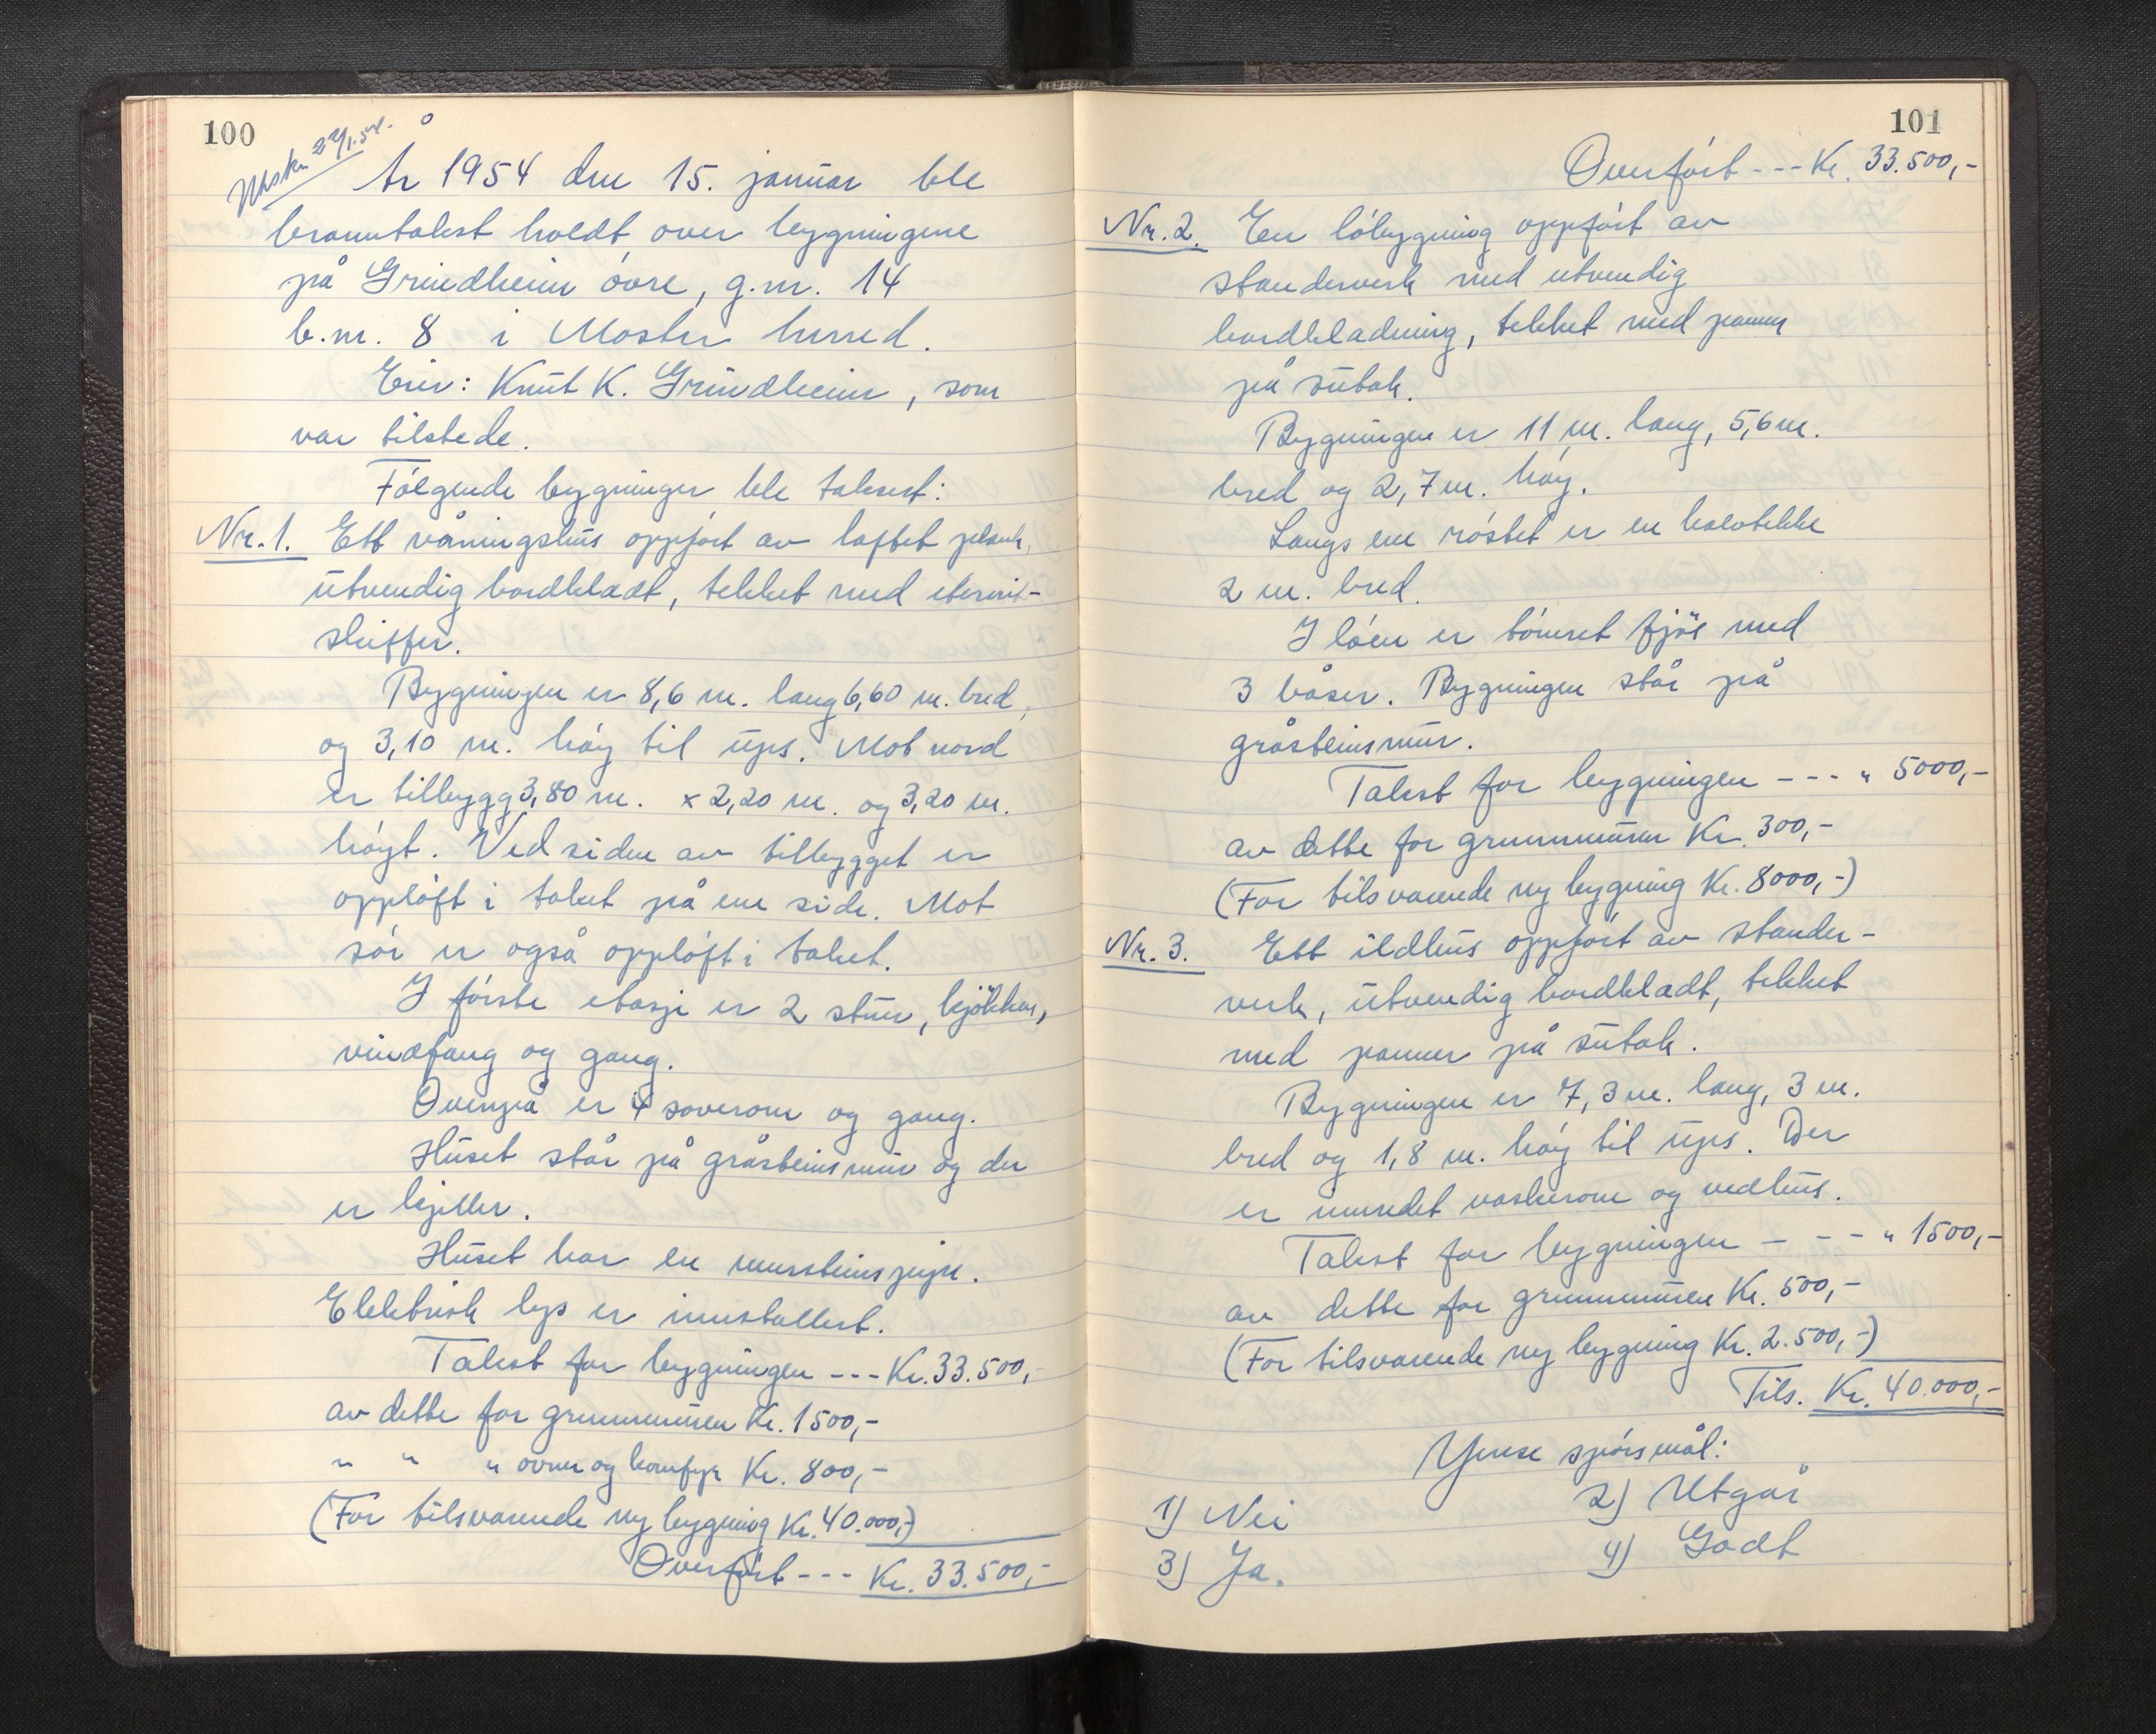 100
Utskr. 22/1.54.
År 1954 den 15. januar ble
branntakst holdt over bygningene
på Grindheim øvre, g.nr. 14
b.nr. 8 i Moster herred.
Eier: Knut K. Grindheim, som
var tilstede.
Følgende bygninger ble taksert:
Nr. 1. Ett våningshus oppført av laftet plank,
utvendig bordkledt, tekket med eternit-
skiffer.
Bygningen er 8,6 m. lang 6,60 m. bred,
og 3,10 m. høy til ups. Mot nord
er tilbygg 3,80 m. x 2,20 m. og 3,20 m.
høyt. Ved siden av tilbygget er
oppløft i taket på ene side. Mot
sør er også oppløft i taket.
I første etasje er 2 stuer, kjøkken,
vindfang og gang.
Ovenpå er 4 soverom og gang.
Huset står på gråsteinsmur og der
er kjeller.
Huset har en mursteinspipe.
Elektrisk lys er innstallert.
Takst for bygningen --- Kr. 33.500,-
av dette for grunnmuren Kr. 1500,-
" " " ovner og komfyr Kr. 800,-
(For tilsvarende ny bygning Kr. 40.000,-)
Overført --- Kr. 33.500,-
101
Overført --- Kr. 33.500,-
Nr. 2. En løbygning oppført av
standerverk med utvendig
bordkledning, tekket med panner
på sutak.
Bygningen er 11 m. lang, 5,6 m.
bred og 2,7 m. høy.
Langs ene røstet er en halvtekke
2 m. bred.
I løen er tømret fjøs med
3 båser. Bygningen står på
gråsteinsmur.
Takst for bygningen --- " 5000,-
av dette for grunnmuren Kr. 300,-
(For tilsvarende ny bygning Kr. 8000,-)
Nr. 3. Ett ildhus oppført av stander-
verk, utvendig bordkledt, tekket
med panner på sutak.
Bygningen er 7,3 m. lang, 3 m.
bred og 1,8 m. høy til ups. Der
er innredet vaskerom og vedhus.
Takst for bygningen - - - " 1500,-
av dette for grunnmuren Kr. 500,-
(For tilsvarende ny bygning Kr. 2.500,-)
Tils. Kr. 40.000,-
Ymse spørsmål:
1) Nei 2) Utgår
3) Ja. 4) Godt